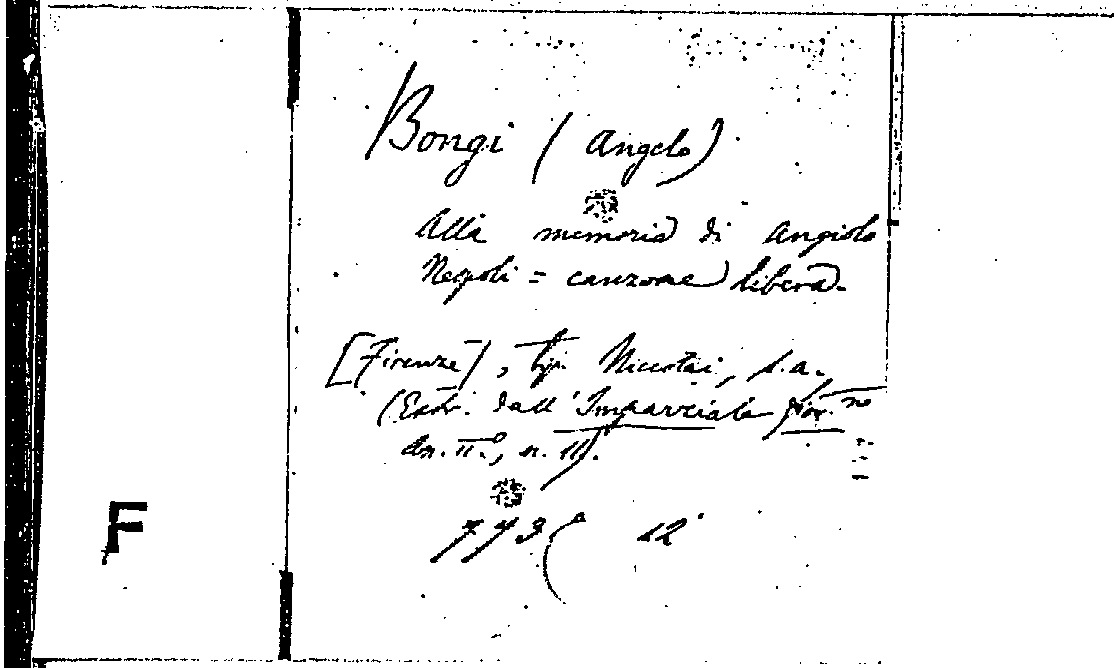 Bongi (Angelo)
Alla memoria di Angiolo
Nespoli = canzone libera.
[Firenze], tip. Niccolai, s.a.
(Estr. dall'Imparziale fior.no
An. II.°, n. 11).
F
773 12